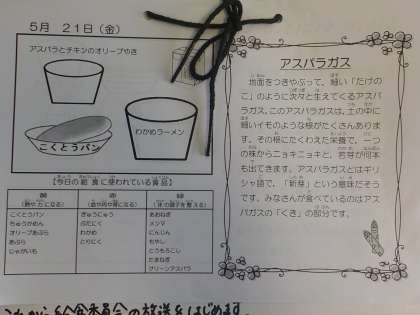 5月 21日(金)
アスパラとチキンのオリーブやき
わかめラーメン
こくとうパン
【今日の給食に使われている食品】
黄
赤
緑
(熱や力になる)
(血や肉や骨になる)
(体の調子を整える)
こくとうパン
ちゅうかめん
オリーブあぶら
あぶら
じゃがいも
ぎゅうにゅう
ぶたにく
わかめ
とりにく
たまねぎ
メンマ
にんじん
もやし
とうもろこし
たまねぎ
グリーンアスパラ
アスパラガス
地面をつきやぶって、細い「たけの
こ」のように次々と生えてくるアスパ
ラガス。このアスパラガスは、土の中に
細いイモのような根がたくさんありま
す。その根にたくわえた栄養で、一つ
の株からニョキニョキと、若芽が何本
も出てきます。アスパラガスとはギリ
シャ語で、「新芽」という意味だそう
です。みなさんが食べているのはアス
パラガスの「くき」の部分です。
これから給食委員会の放送をはじめます。